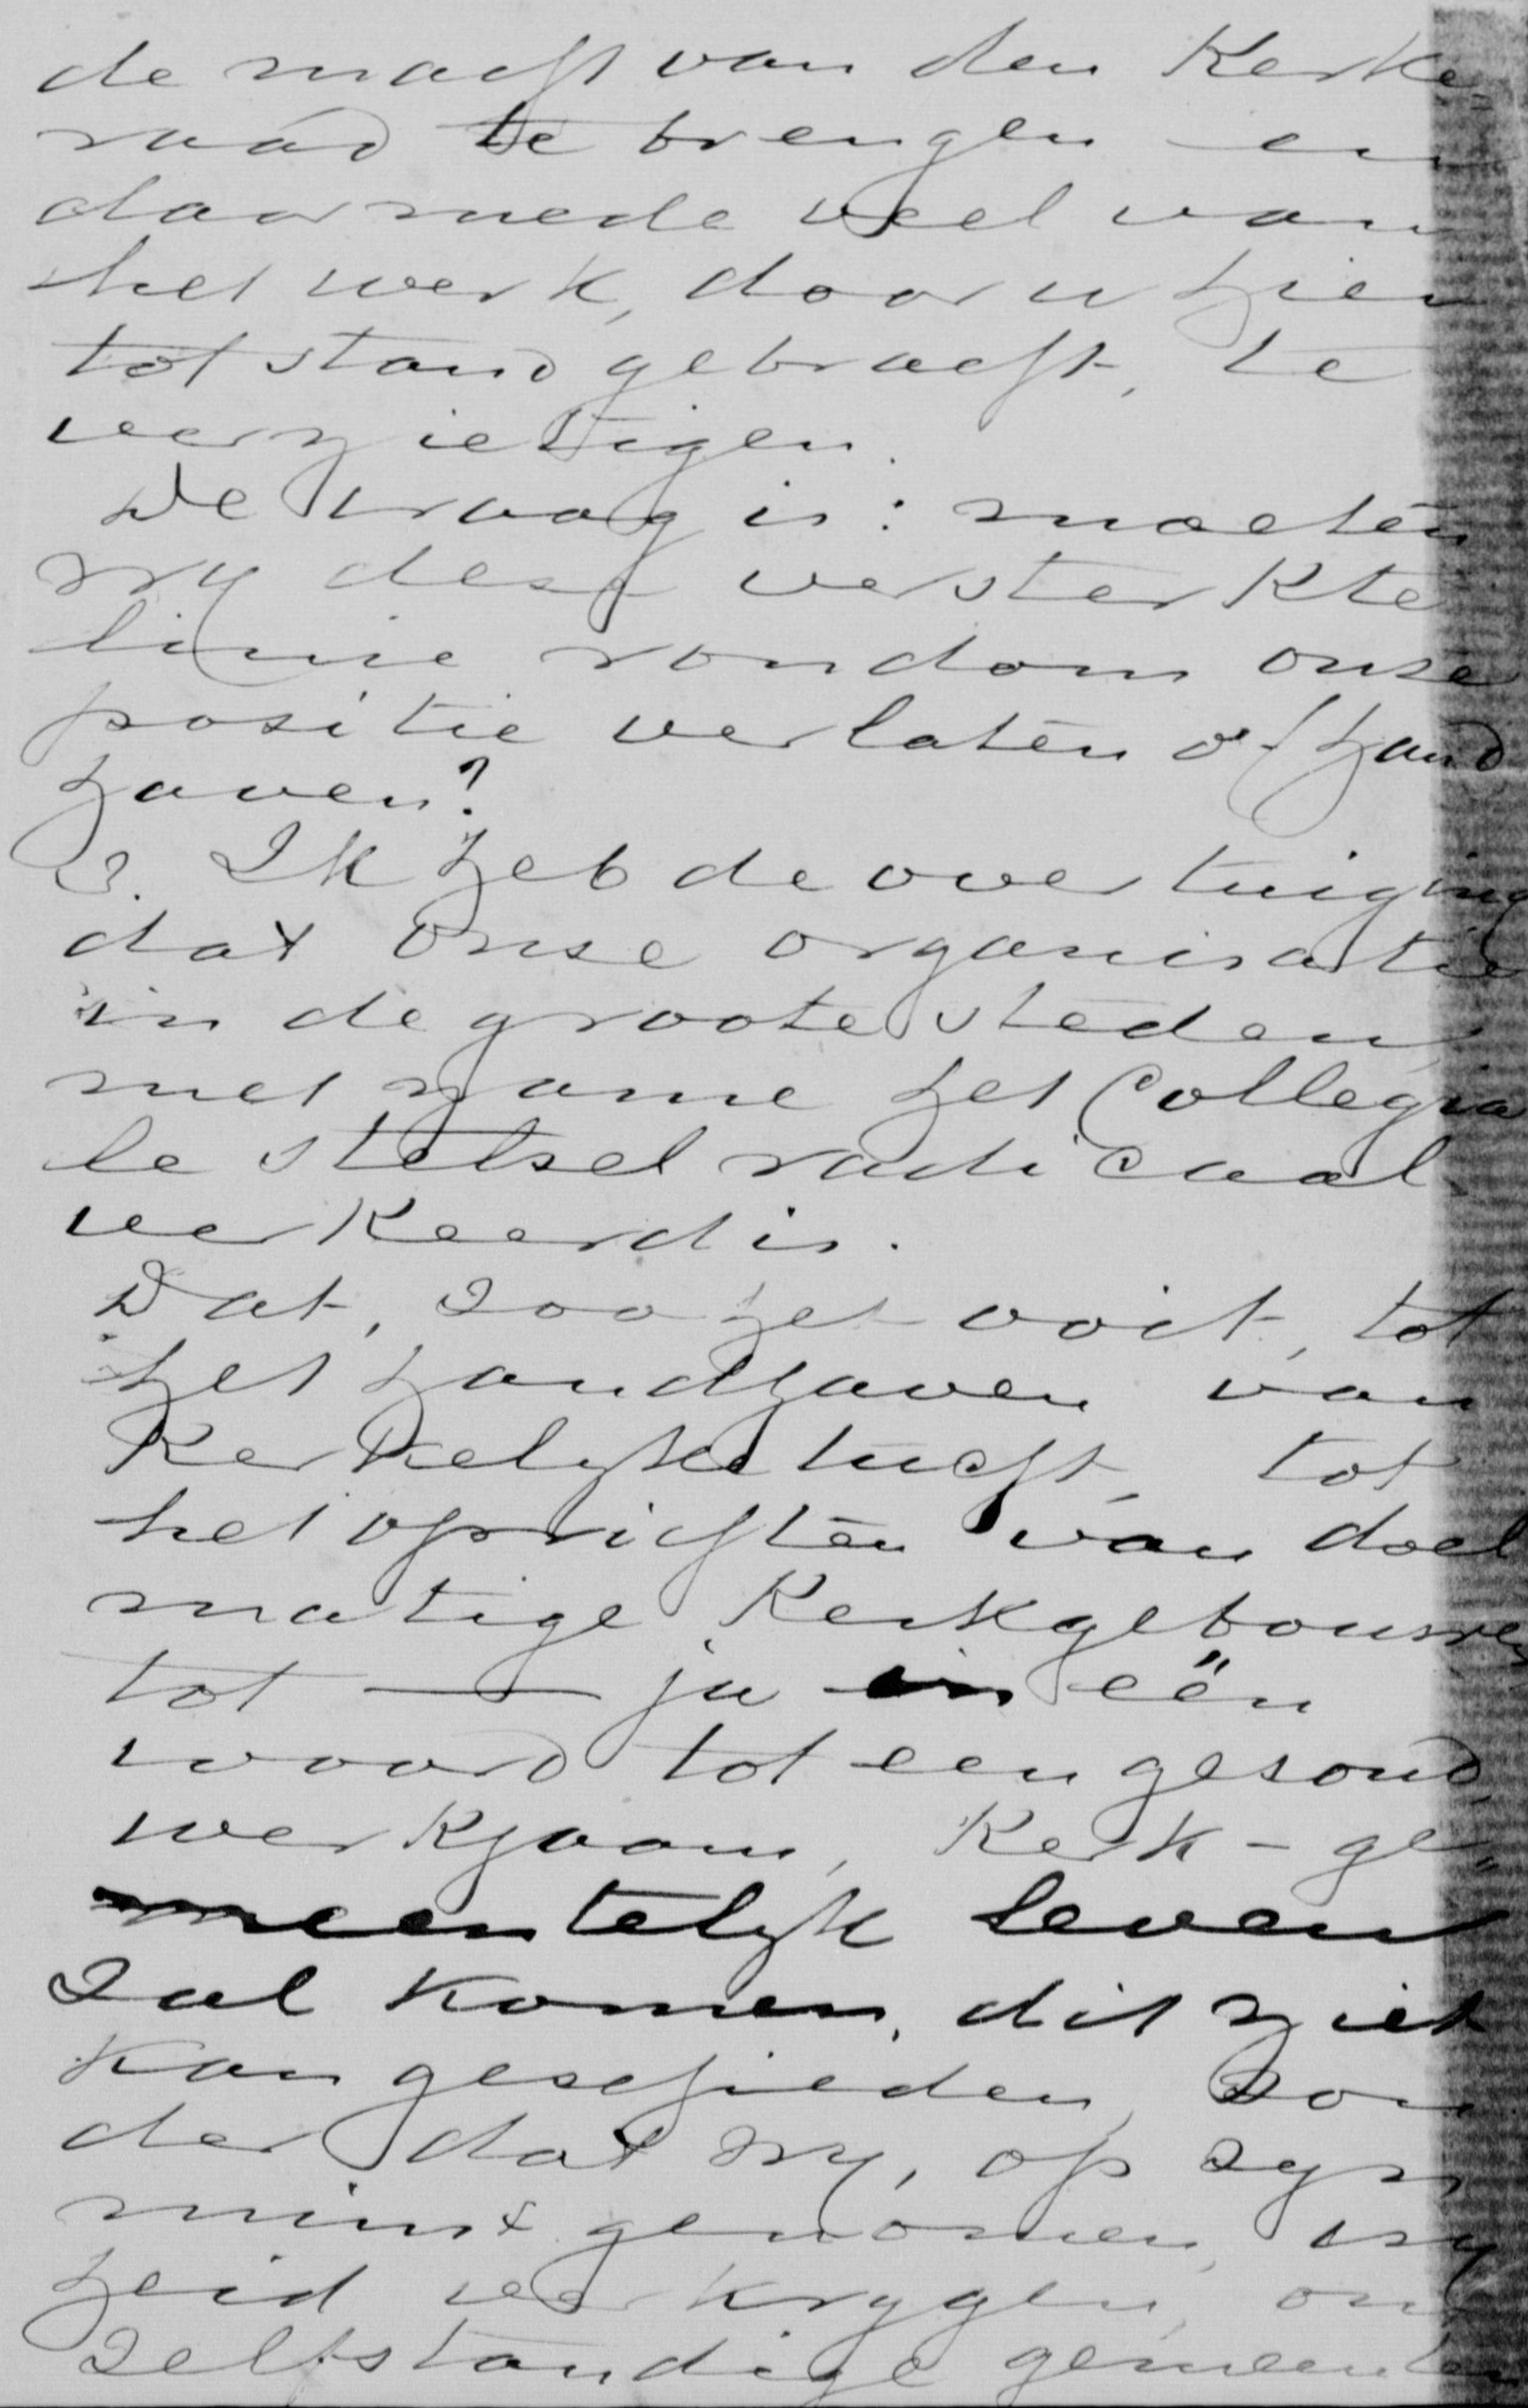 de macht van den Kerke=
raad te brengen en
daarmede veel van
het werk, door u hier
tot stand gebracht, te
vernietigen.
De vraag is: moeten
wy deze versterkte
linie rondom onze
positie verlaten of hand
haven?
3. Ik heb de overtuiging
dat onse organisatie
in de groote steden,
met name het Collegia
le stelsel radicaal
verkeerd is.
Dat, zoo het ooit, tot
het handhaven van
Kerkelyke tucht, tot
het oprichten van doel
matige Kerkgebouwen
tot — ja in één
woord tot een gesond,
werkzaam, Kerk-ge=
meentelyk leven
zal komen, dit niet
kan geschieden, zon
der dat wy, op zyn
minst genomen, vry
heid verkrygen, om
zelfstandige gemeenten